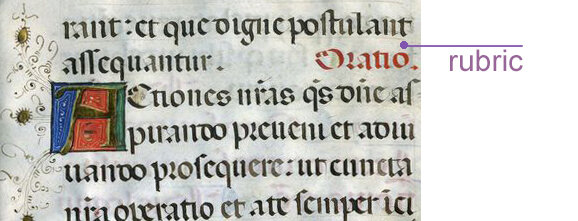 rant: et que digne postulant
assequantur. Oratio.
Actiones nr̃as q̃s dñe as-
pirando preueni et adiu
uando prosequere: ut cuncta
nr̃a operatio et a te semper ici
rubric